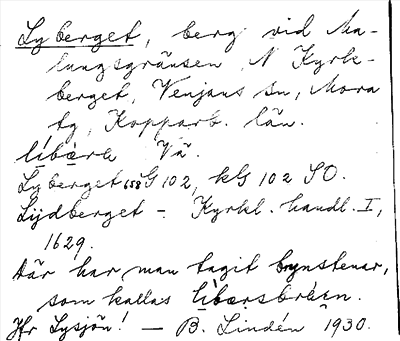 Lyberget, berg vid Ma-
lungsgränsen, N Kyrk-
berget, Venjans sn, Mora
tg, Kopparb. län.
líbærk Vä.
Lyberget 158 G 102, kls 102 SO.
Lijdberget - Kyrkl. handl. I,
1629.
där har man tagit brynstenar,
som kallas
Jfr Lysjön! — B. Lindén 1930.